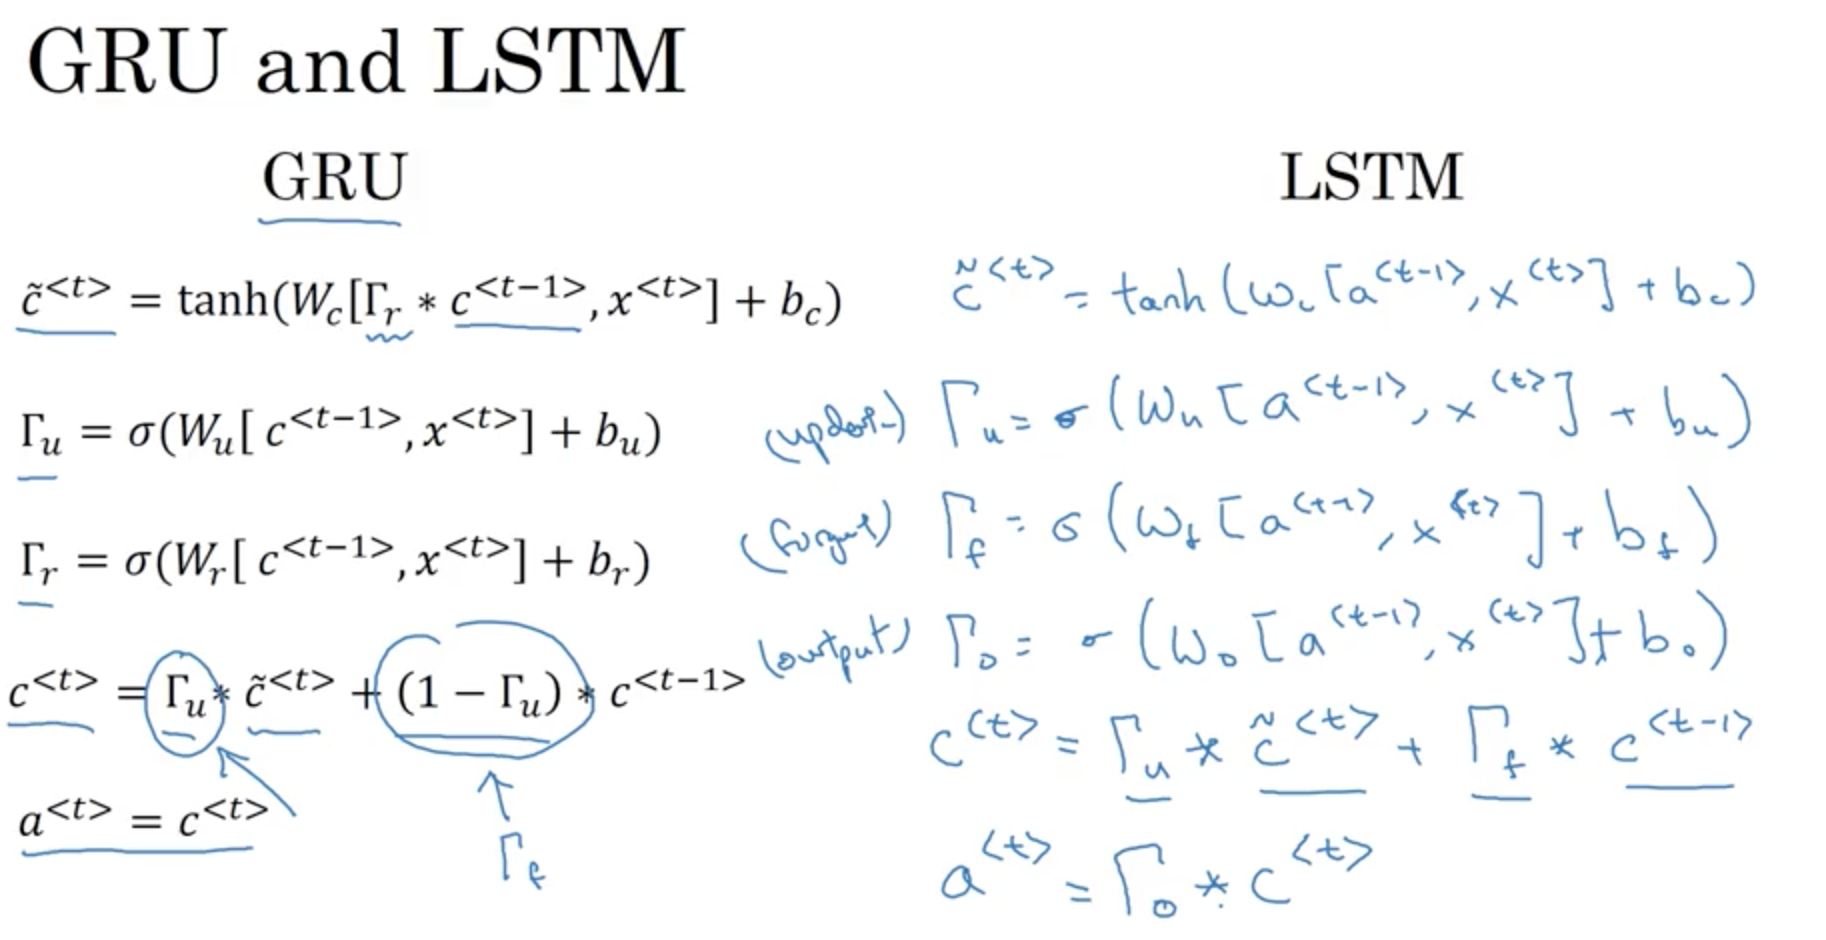 GRU and LSTM
GRU
c̃<t> = tanh(W_c[Γ_r * c<t−1>, x<t>] + b_c)
Γ_u = σ(W_u[ c<t−1>, x<t>] + b_u)
Γ_r = σ(W_r[ c<t−1>, x<t>] + b_r)
c<t> = Γ_u * c̃<t> + (1 − Γ_u) * c<t−1>
Γ_f
a<t> = c<t>
LSTM
c̃<t> = tanh(W_c[a<t-1>, x<t>] + b_c)
Γ_u = σ(W_u[a<t-1>, x<t>] + b_u)
(forget) Γ_f = σ(W_f[a<t-1>, x<t>] + b_f)
(output) Γ_o = σ(W_o[a<t-1>, x<t>] + b_o)
c<t> = Γ_u * c̃<t> + Γ_f * c<t-1>
a<t> = Γ_o * c<t>